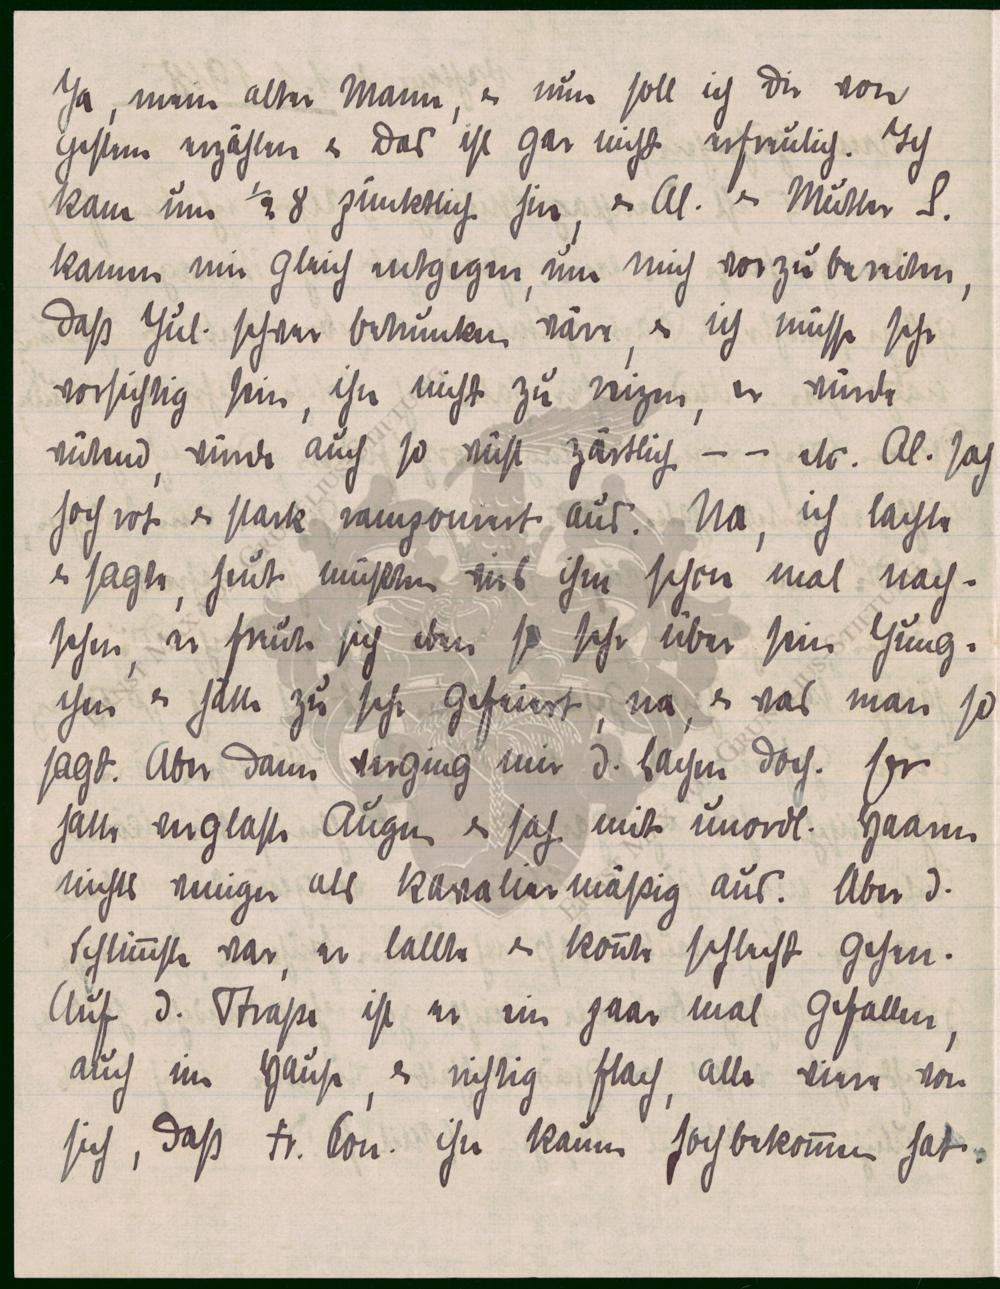 Ja, mein alter Mann, & nun soll ich Dir von
gestern erzählen & das ist gar nicht erfreulich. Ich
kam um ½ 8 pünktlich hin, & Al. & Mutter L.
kamen mir gleich entgegen, um mich vorzubereiten,
daß Jul. schwer betrunken wäre, & ich müsse sehr
vorsichtig sein, ihn nicht zu reizen, er würde
wütend, würde auch so wüst zärtlich – – etc. Al. sah
hochrot & stark ramponiert aus. Na, ich lachte
& sagte, heut müßten wirs ihm schon mal nach-
sehen, er freute sich eben so sehr über sein Jung-
chen & hätte zu sehr gefeiert, na, & was man so
sagt. Aber dann verging mir d. Lachen doch. Er
hatte verglaste Augen & sah mit unordl. Haaren
nichts weniger als kavaliermäßig aus. Aber d.
Schlim̅ste war, er lallte & kon̅te schlecht gehen.
Auf d. Straße ist er ein paar mal gefallen,
auch im Hause, & richtig flach, alle viere von
sich, daß Fr. Con. ihn kaum hochbekom̅en hat.